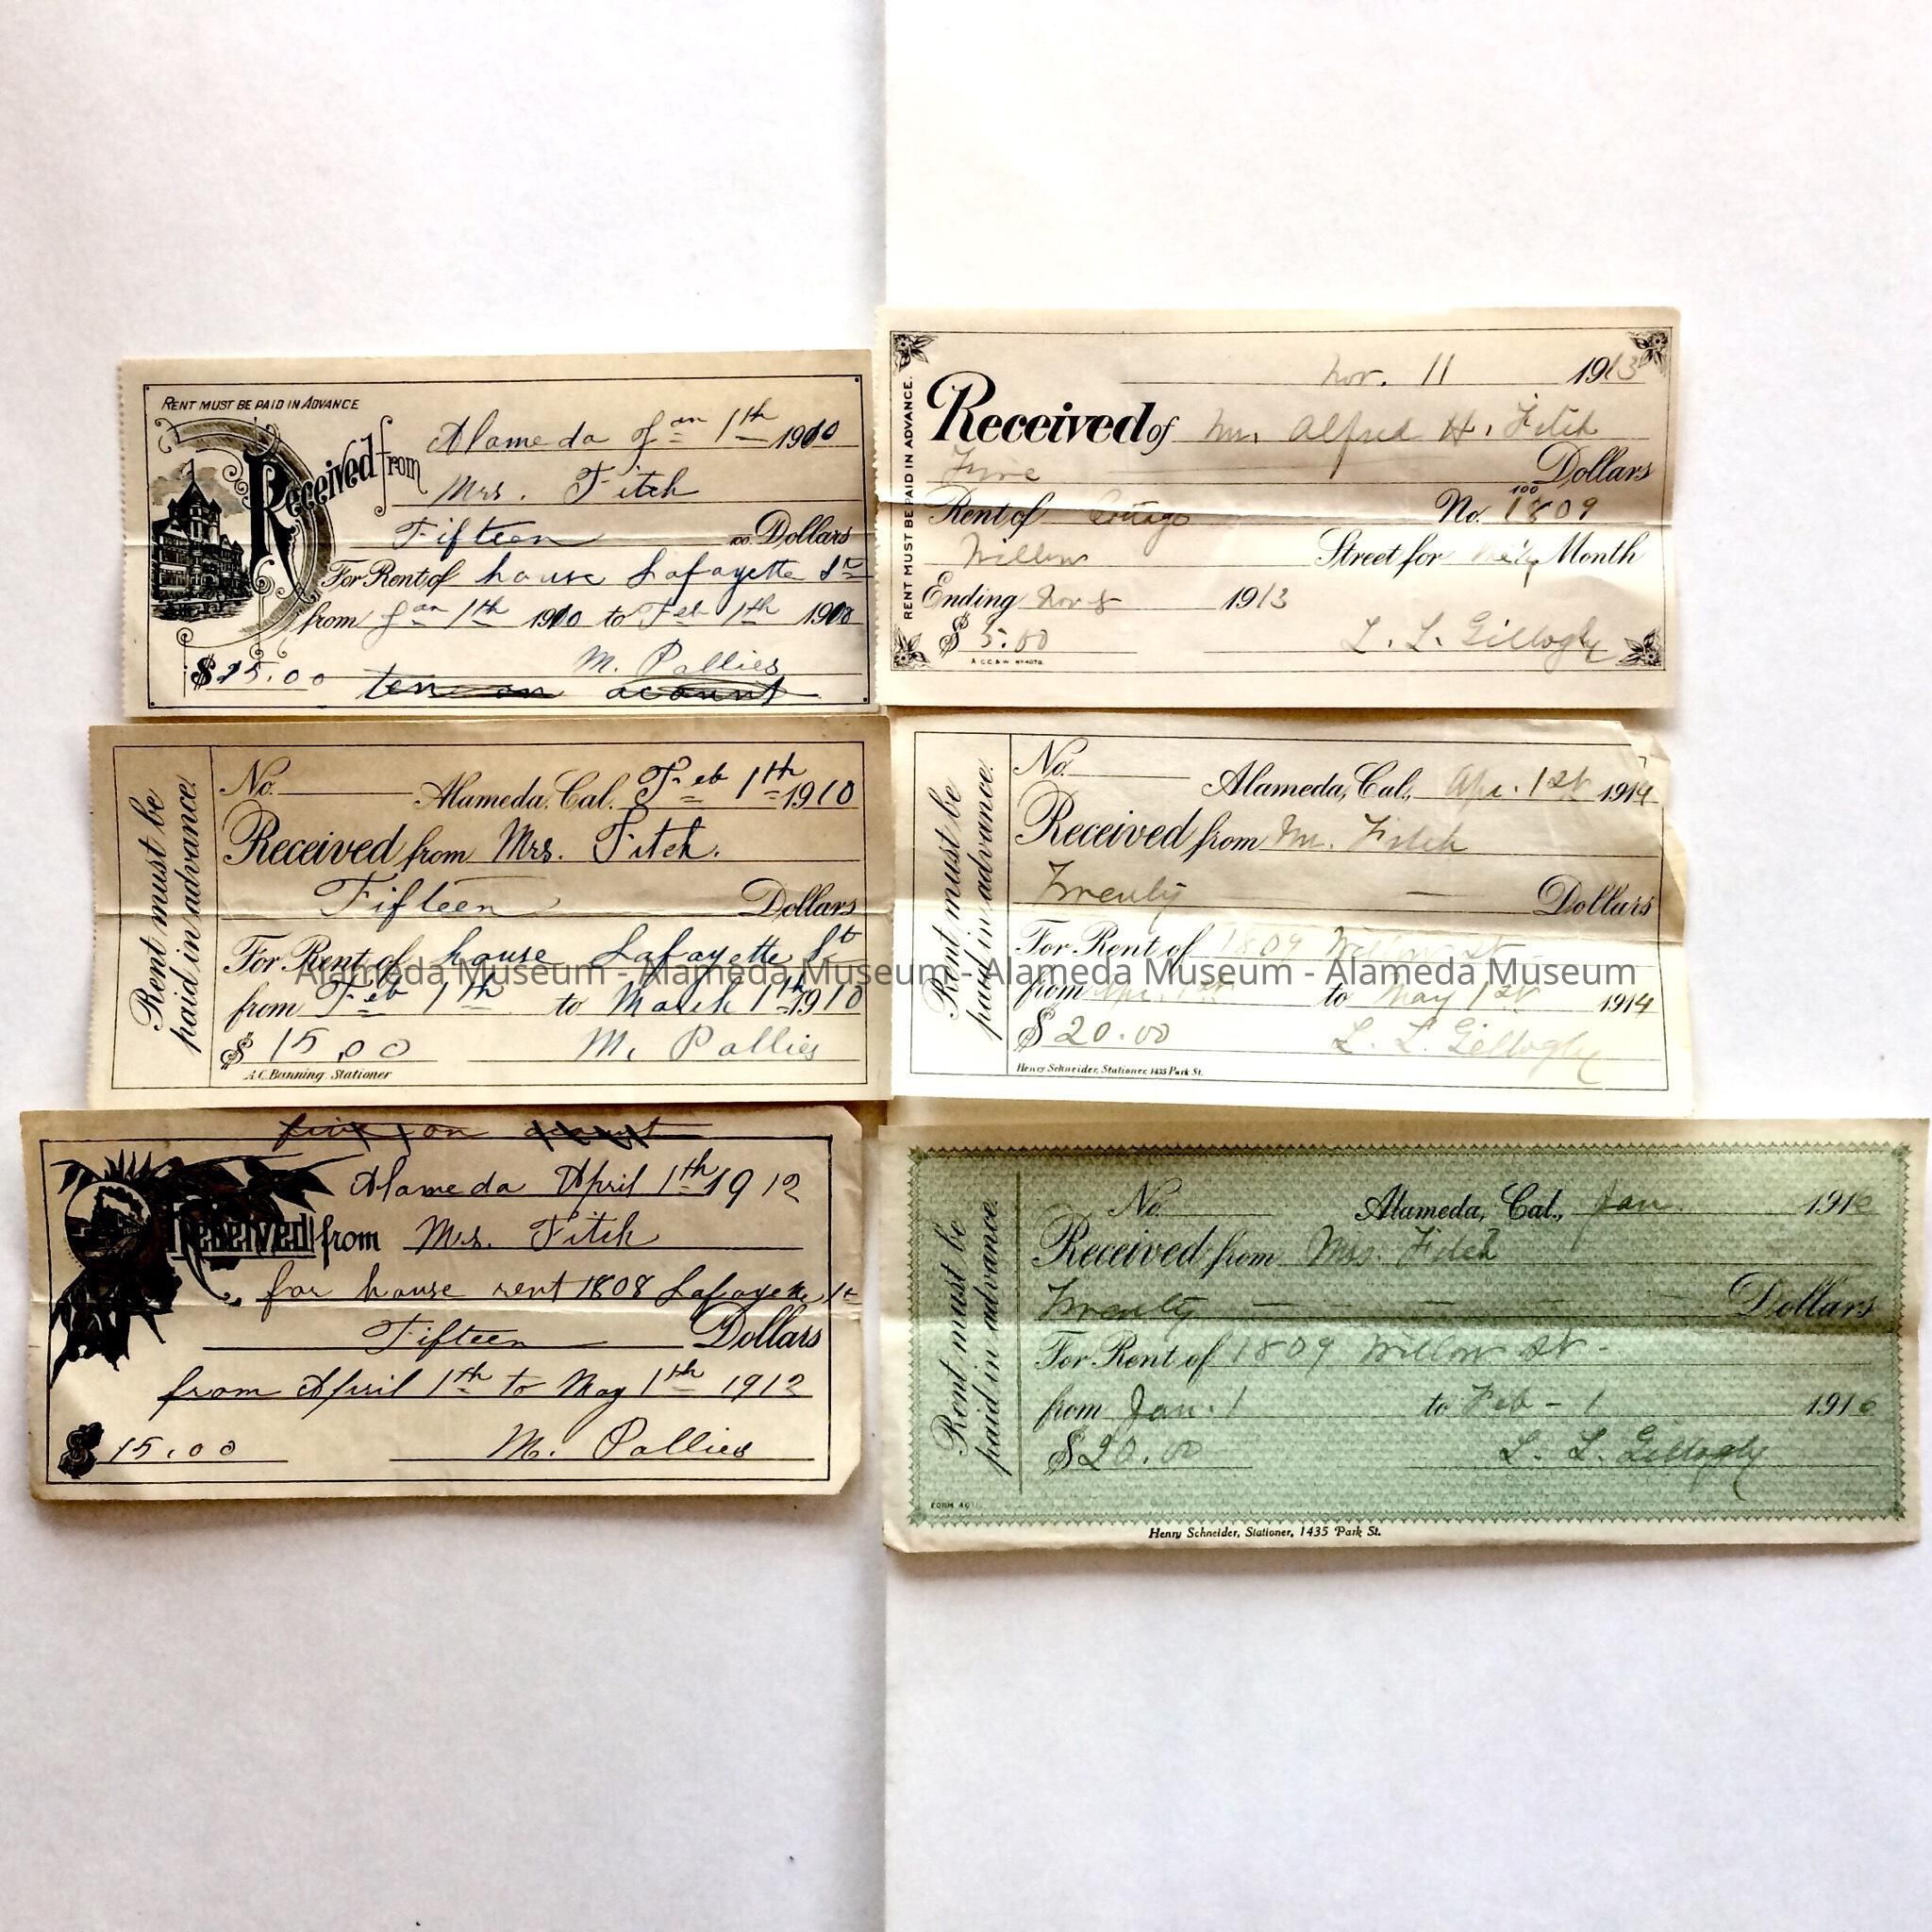 RENT MUST BE PAID IN ADVANCE
Alameda Jan 1th 1910
Received from
Mrs. Fitch
Fifteen 00 Dollars
For Rent of house Lafayette St
from Jan 1th 1910 to Feb 1th 1910
M. Pallies
$15.00 ten on acount
No. Alameda, Cal. Feb 1th 1910
Received from Mrs. Fitch.
Fifteen Dollars
For Rent of house Lafayette St
from Feb 1th to March 1th 1910
$ 15.00 M. Pallies
A.C. Banning, Stationer
Rent must be
paid in advance.
five on acount
Alameda April 1th 1912
Received from Mrs. Fitch
for house rent 1808 Lafayette St
Fifteen Dollars
from April 1th to May 1th 1912
$ 15.00 M. Pallies
RENT MUST BE PAID IN ADVANCE.
Nov. 11 1913
Received of Mr. Alfred H. Fitch
Five Dollars
100
Rent of Cottage No. 1809
Willow Street for Month
Ending Nov 8 1913
$ 5.00 L. L. Gillogly
Rent must be
paid in advance.
No. Alameda, Cal., Apr. 1st 1914
Received from Mr. Fitch
Twenty Dollars
For Rent of 1809 Willow St
from Apr. 1st to May 1st 1914
$ 20.00 L. L. Gillogly
Henry Schneider, Stationer, 1435 Park St.
Rent must be
paid in advance.
No. Alameda, Cal., Jan. 1916
Received from Mrs. Fitch
Twenty Dollars
For Rent of 1809 Willow St.
from Jan. 1 to Feb - 1 1916
$20.00 L. L. Gillogly
Henry Schneider, Stationer, 1435 Park St.
Alameda Museum - Alameda Museum - Alameda Museum - Alameda Museum